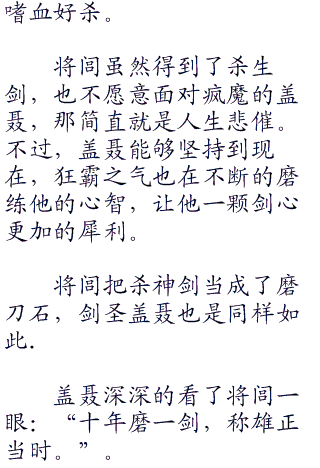 嗜血好杀。
将闾虽然得到了杀生
剑，也不愿意面对疯魔的盖
聂，那简直就是人生悲催。
不过，盖聂能够坚持到现
在，狂霸之气也在不断的磨
练他的心智，让他一颗剑心
更加的犀利。
将闾把杀神剑当成了磨
刀石，剑圣盖聂也是同样如
此.
盖聂深深的看了将闾一
眼：“十年磨一剑，称雄正
当时。”。